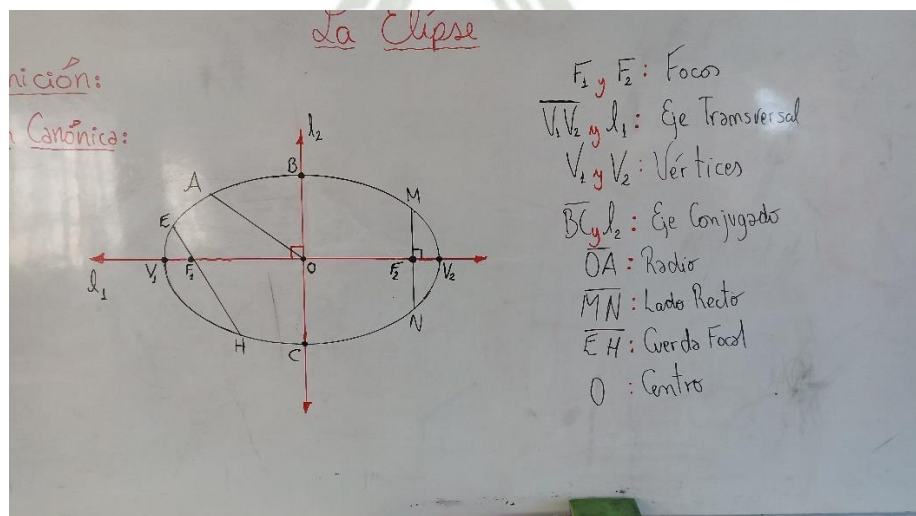 La Elipse
nición:
Canónica:
l₂
B
A
M
E
V₁
F₁
O
F₂
V₂
l₁
N
H
C
F₁ y F₂ : Focos
V₁V₂ y l₁ : Eje Transversal
V₁ y V₂ : Vértices
BC y l₂ : Eje Conjugado
OA : Radio
MN : Lado Recto
EH : Cuerda Focal
O : Centro